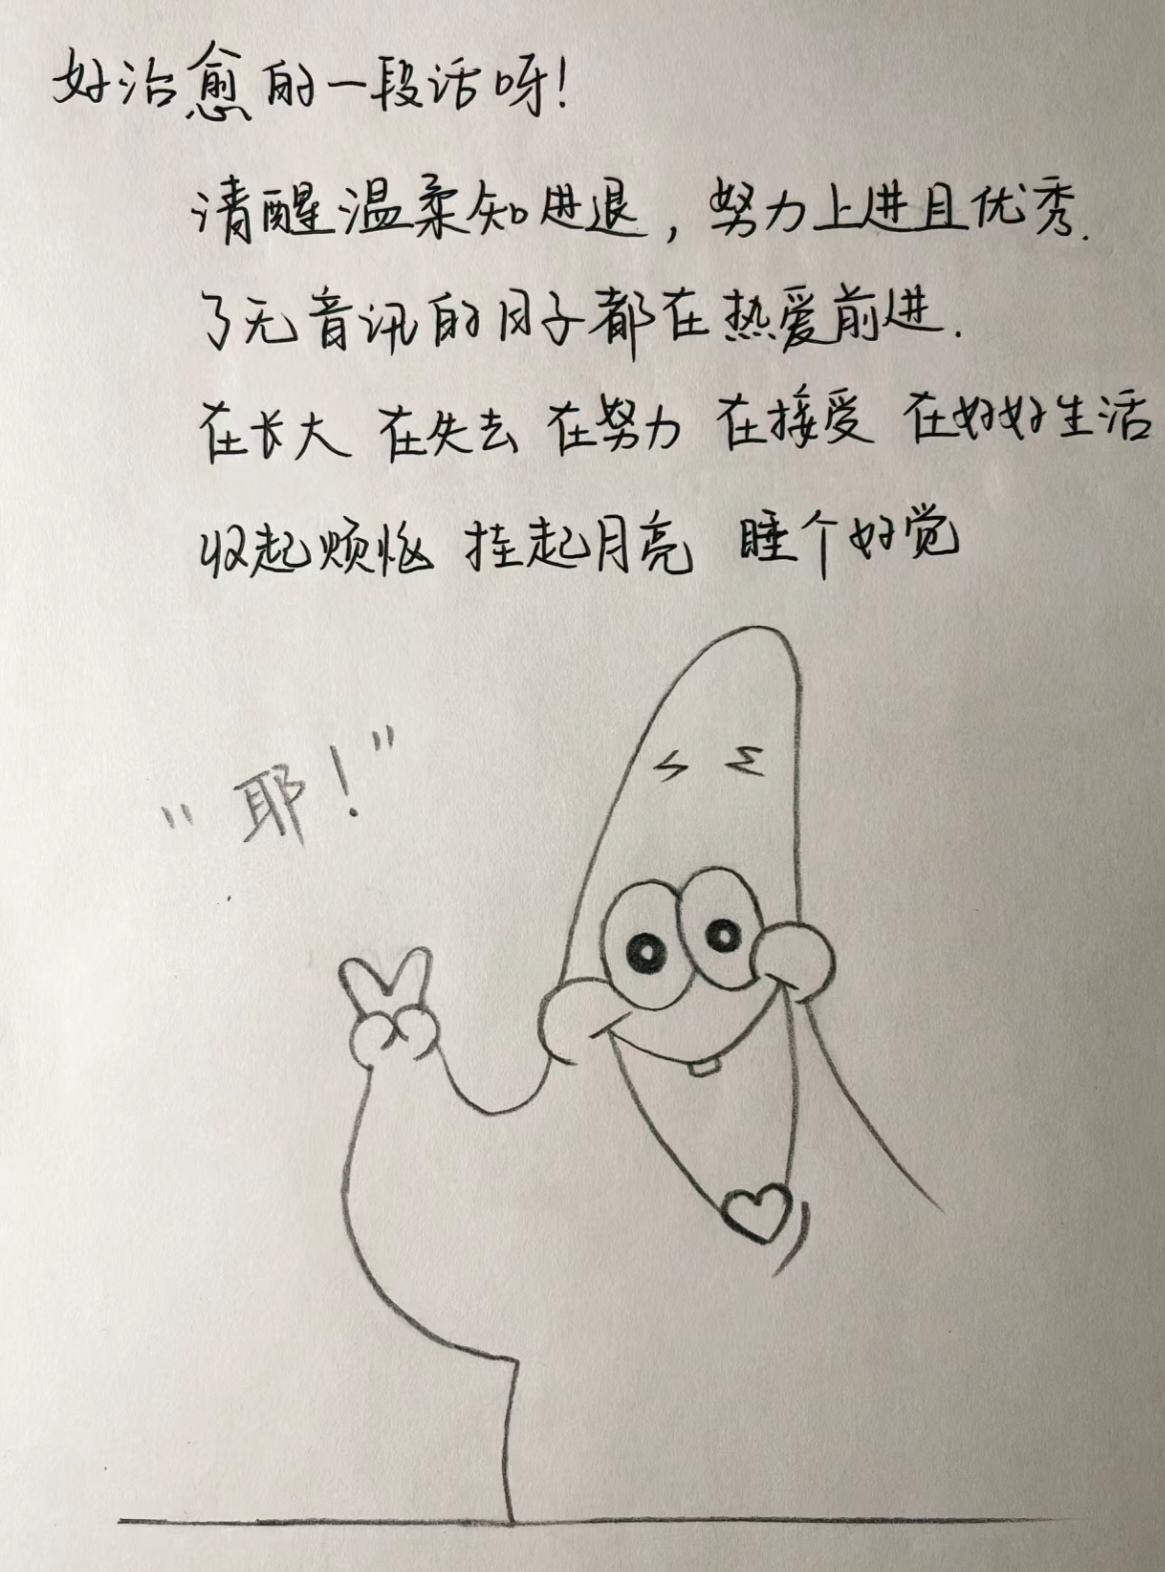 好治愈的一段话呀！
清醒温柔知进退，努力上进且优秀.
了无音讯的日子都在热爱前进.
在长大 在失去 在努力 在接受 在好好生活
收起烦恼 挂起月亮 睡个好觉
“耶！”